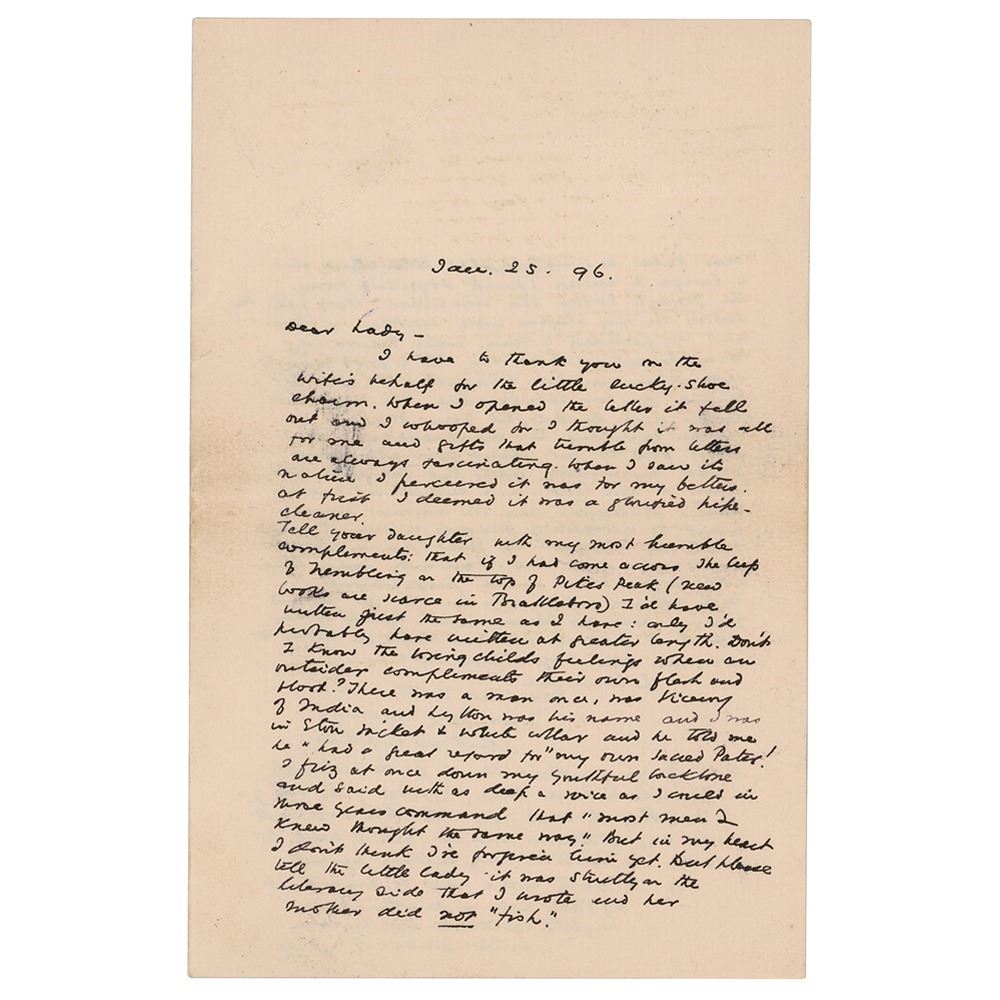 Jan. 25. 96.
Dear Lady –
I have to thank you on the
wife's behalf for the little lucky-shoe
charm. When I opened the letter it fell
out and I whooped for I thought it was all
for me and gifts that tumble from letters
are always fascinating. When I saw its
nature I perceived it was for my betters.
at first I deemed it was a glorified pipe-
cleaner.
Tell your daughter with my most humble
compliments: that if I had come across The Cup
of Trembling on the top of Pikes Peak (new
books are scarce in Brattleboro) I'd have
written just the same as I have: only I'd
probably have written at greater length. Don't
I know the loving childs feelings when an
outsider compliments their own flesh and
blood? There was a man once, was Viceroy
of India and Lytton was his name and I was
in Eton jacket & white collar and he told me
he "had a great regard for" my own sacred Pater!
I friz at once down my youthful backbone
and said with as deep a voice as I could in
those years command that "most men I
knew thought the same way." But in my heart
I don't think I've forgiven him yet. But please
tell the little lady it was strictly on the
literary side that I wrote and her
mother did not "fish."